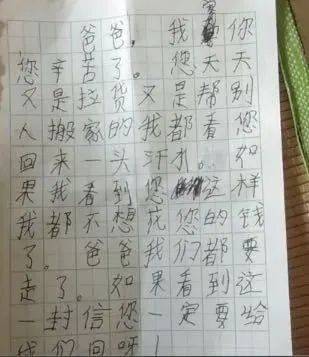 爸爸，我你
您辛苦了。您天天
又是拉货又是帮别
人搬家的我都看您
回来一头汗水。如
果我看到您这样
我都不想花您的钱
了。爸爸我们都要
走了。如果看到这
一封信您一定要给
我们回呀！